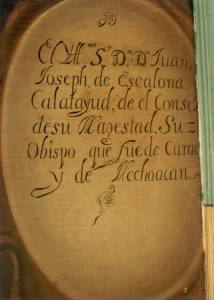 El Yllᵐᵒ S.ʳ D.ⁿ D.ⁿ Juan,
Joseph de Escalona,
Calatayud, de el Conse
de su Magestad, Su=
Obispo que fue de Carac
y de Mechoacan